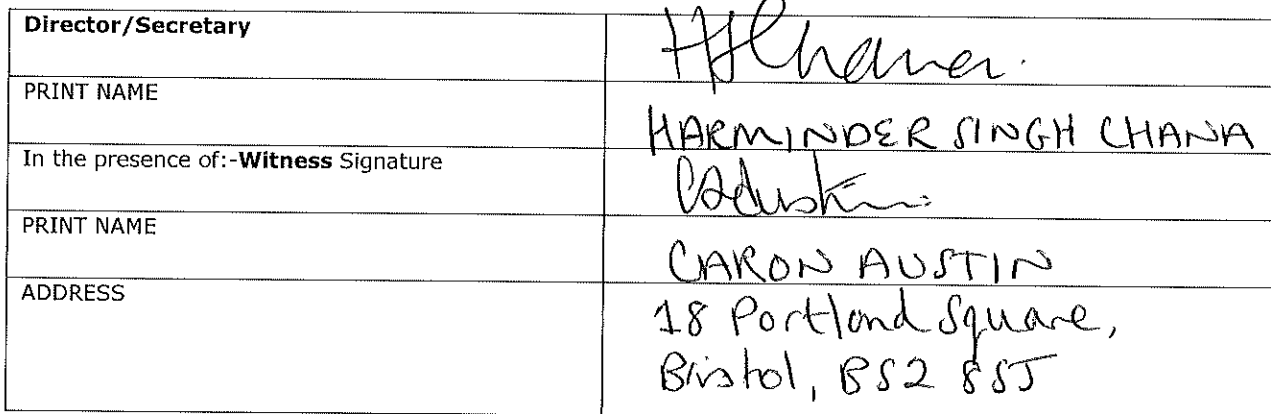 Director/Secretary
PRINT NAME
HARMINDER SINGH CHANA
In the presence of:-Witness Signature
PRINT NAME
CARON AUSTIN
ADDRESS
18 Portland Square,
Bristol, BS2 8SJ